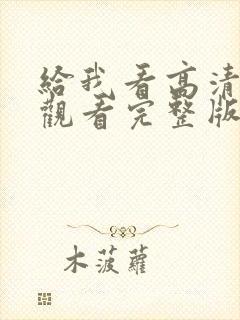 給我看高清
觀看完整版
木菠蘿